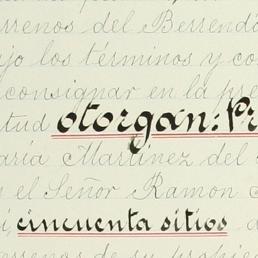 rrenos del Berrend
ijo los términos y co
consignar en la pre
tud otorgan: Pr
aría Martinez del
n el Señor Ramon
cincuenta sitios
rrenos de su propied